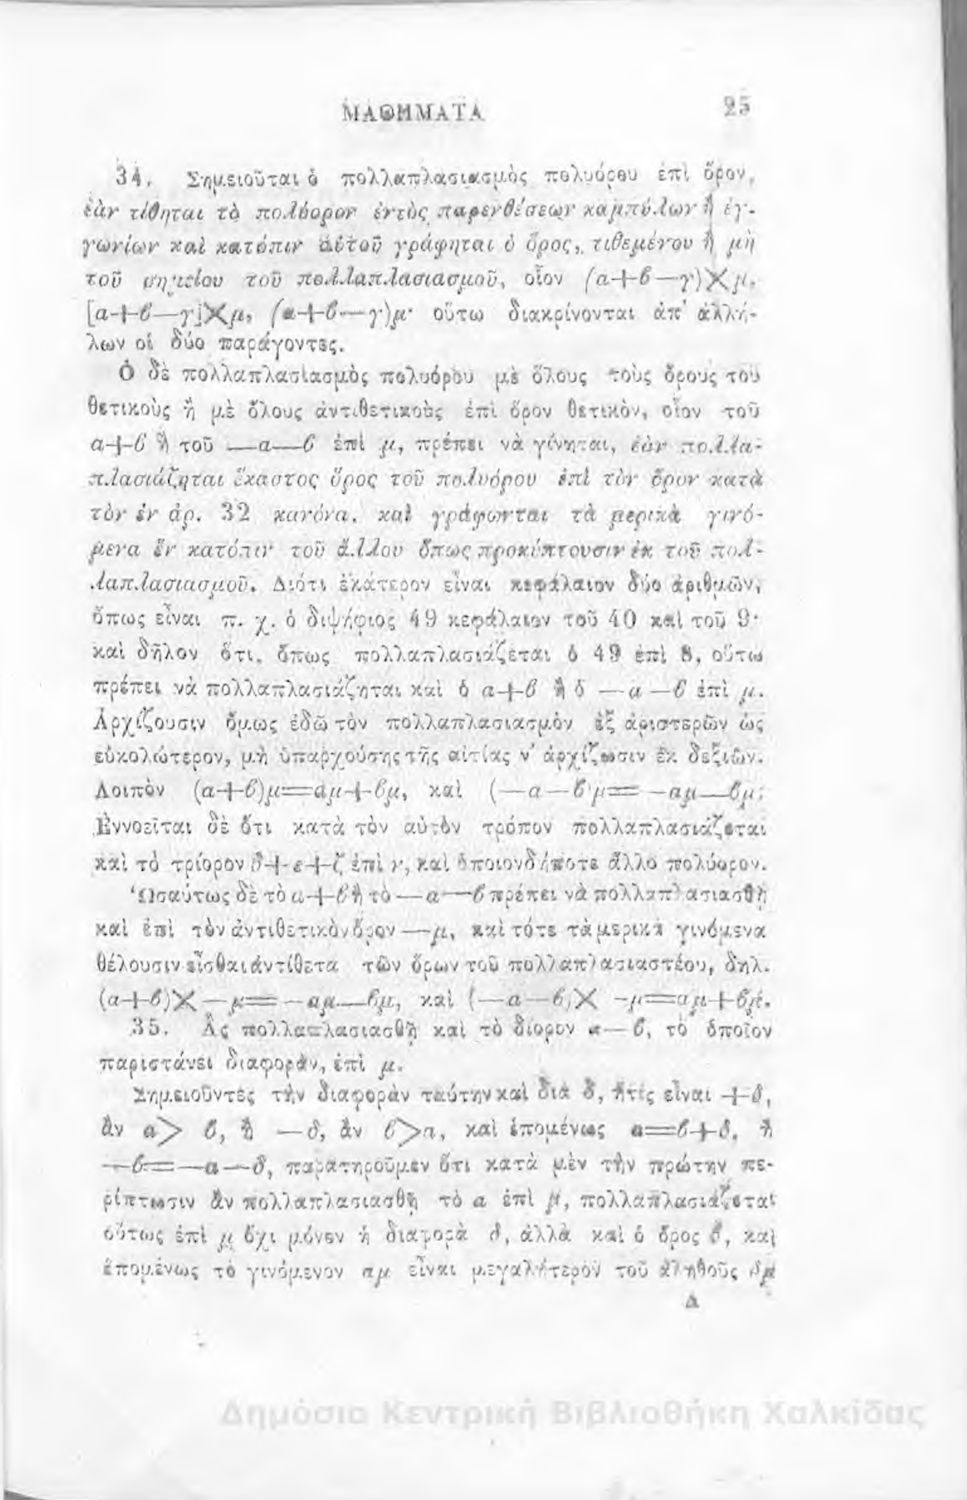 ΜΑΘΗΜΑΤΑ 25
34. Σημειοῦται ὁ πολλαπλασιασμὸς πολυόρου ἐπὶ ὅρον,
ἐὰν τίθηται τὸ πολύορον ἐντὸς παρενθέσεων καμπύλων ἢ ἐγ-
γωνίων καὶ κατόπιν αὐτοῦ γράφηται ὁ ὅρος, τιθεμένου ἢ μὴ
τοῦ σημείου τοῦ πολλαπλασιασμοῦ, οἷον (α+β—γ)Χμ,
[α+β—γ]Χμ, (α+β—γ)μ· οὕτω διακρίνονται ἀπ' ἀλλή-
λων οἱ δύο παράγοντες.
Ὁ δὲ πολλαπλασιασμὸς πολυόρου μὲ ὅλους τοὺς ὅρους του
θετικοὺς ἢ μὲ ὅλους ἀντιθετικοὺς ἐπὶ ὅρον θετικὸν, οἷον τοῦ
α+β ἢ τοῦ —α—β ἐπὶ μ, πρέπει νὰ γίνηται, ἐὰν πολλα-
πλασιάζηται ἕκαστος ὅρος τοῦ πολυόρου ἐπὶ τὸν ὅρον κατὰ
τὸν ἐν ἀρ. 32 κανόνα, καὶ γράφωνται τὰ μερικὰ γινό-
μενα ἓν κατόπιν τοῦ ἄλλου ὅπως προκύπτουσιν ἐκ τοῦ πολ-
λαπλασιασμοῦ. Διότι ἑκάτερον εἶναι κεφάλαιον δύο ἀριθμῶν,
ὅπως εἶναι π. χ. ὁ διψήφιος 49 κεφάλαιον τοῦ 40 καὶ τοῦ 9·
καὶ δῆλον ὅτι, ὅπως πολλαπλασιάζεται ὁ 49 ἐπὶ 8, οὕτω
πρέπει νὰ πολλαπλασιάζηται καὶ ὁ α+β ἢ ὁ —α—β ἐπὶ μ.
Ἀρχίζουσιν ὅμως ἐδῶ τὸν πολλαπλασιασμὸν ἐξ ἀριστερῶν ὡς
εὐκολώτερον, μὴ ὑπαρχούσης τῆς αἰτίας ν' ἀρχίζωσιν ἐκ δεξιῶν.
Λοιπὸν (α+β)μ=αμ+βμ, καὶ (—α—β)μ=—αμ—βμ.
Ἐννοεῖται δὲ ὅτι κατὰ τὸν αὐτὸν τρόπον πολλαπλασιάζεται
καὶ τὸ τρίορον δ+ε+ζ ἐπὶ ν, καὶ ὁποιονδήποτε ἄλλο πολύορον.
Ὡσαύτως δὲ τὸ α+β ἢ τὸ —α—β πρέπει νὰ πολλαπλασιασθῇ
καὶ ἐπὶ τὸν ἀντιθετικὸν ὅρον —μ, καὶ τότε τὰ μερικὰ γινόμενα
θέλουσιν εἶσθαι ἀντίθετα τῶν ὅρων τοῦ πολλαπλασιαστέου, δηλ.
(α+β)Χ—μ=—αμ—βμ, καὶ (—α—β)Χ—μ=αμ+βμ.
35. Ἂς πολλαπλασιασθῇ καὶ τὸ δίορον α—β, τὸ ὁποῖον
παριστάνει διαφορὰν, ἐπὶ μ.
Σημειοῦντες τὴν διαφορὰν ταύτην καὶ διὰ δ, ἥτις εἶναι +δ,
ἂν α> β, ἢ —δ, ἂν β>α, καὶ ἑπομένως α=β+δ, ἢ
—β=—α—δ, παρατηροῦμεν ὅτι κατὰ μὲν τὴν πρώτην πε-
ρίπτωσιν ἂν πολλαπλασιασθῇ τὸ α ἐπὶ μ, πολλαπλασιάζεται
οὕτως ἐπὶ μ ὄχι μόνον ἡ διαφορὰ δ, ἀλλὰ καὶ ὁ ὅρος β, καὶ
ἑπομένως τὸ γινόμενον αμ εἶναι μεγαλήτερον τοῦ ἀληθοῦς δμ
Δ
Δημόσια Κεντρική Βιβλιοθήκη Χαλκίδας